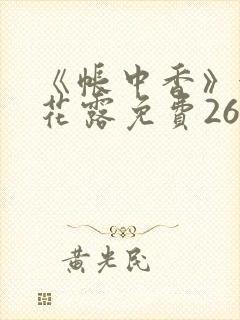 《帐中香》
花露免費26
黄光民